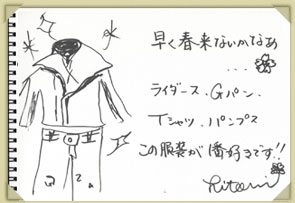 早く春来ないかなぁ
...
ライダース、Gパン、
Tシャツ、パンプス
この服装が1番好きです!!
hitomi